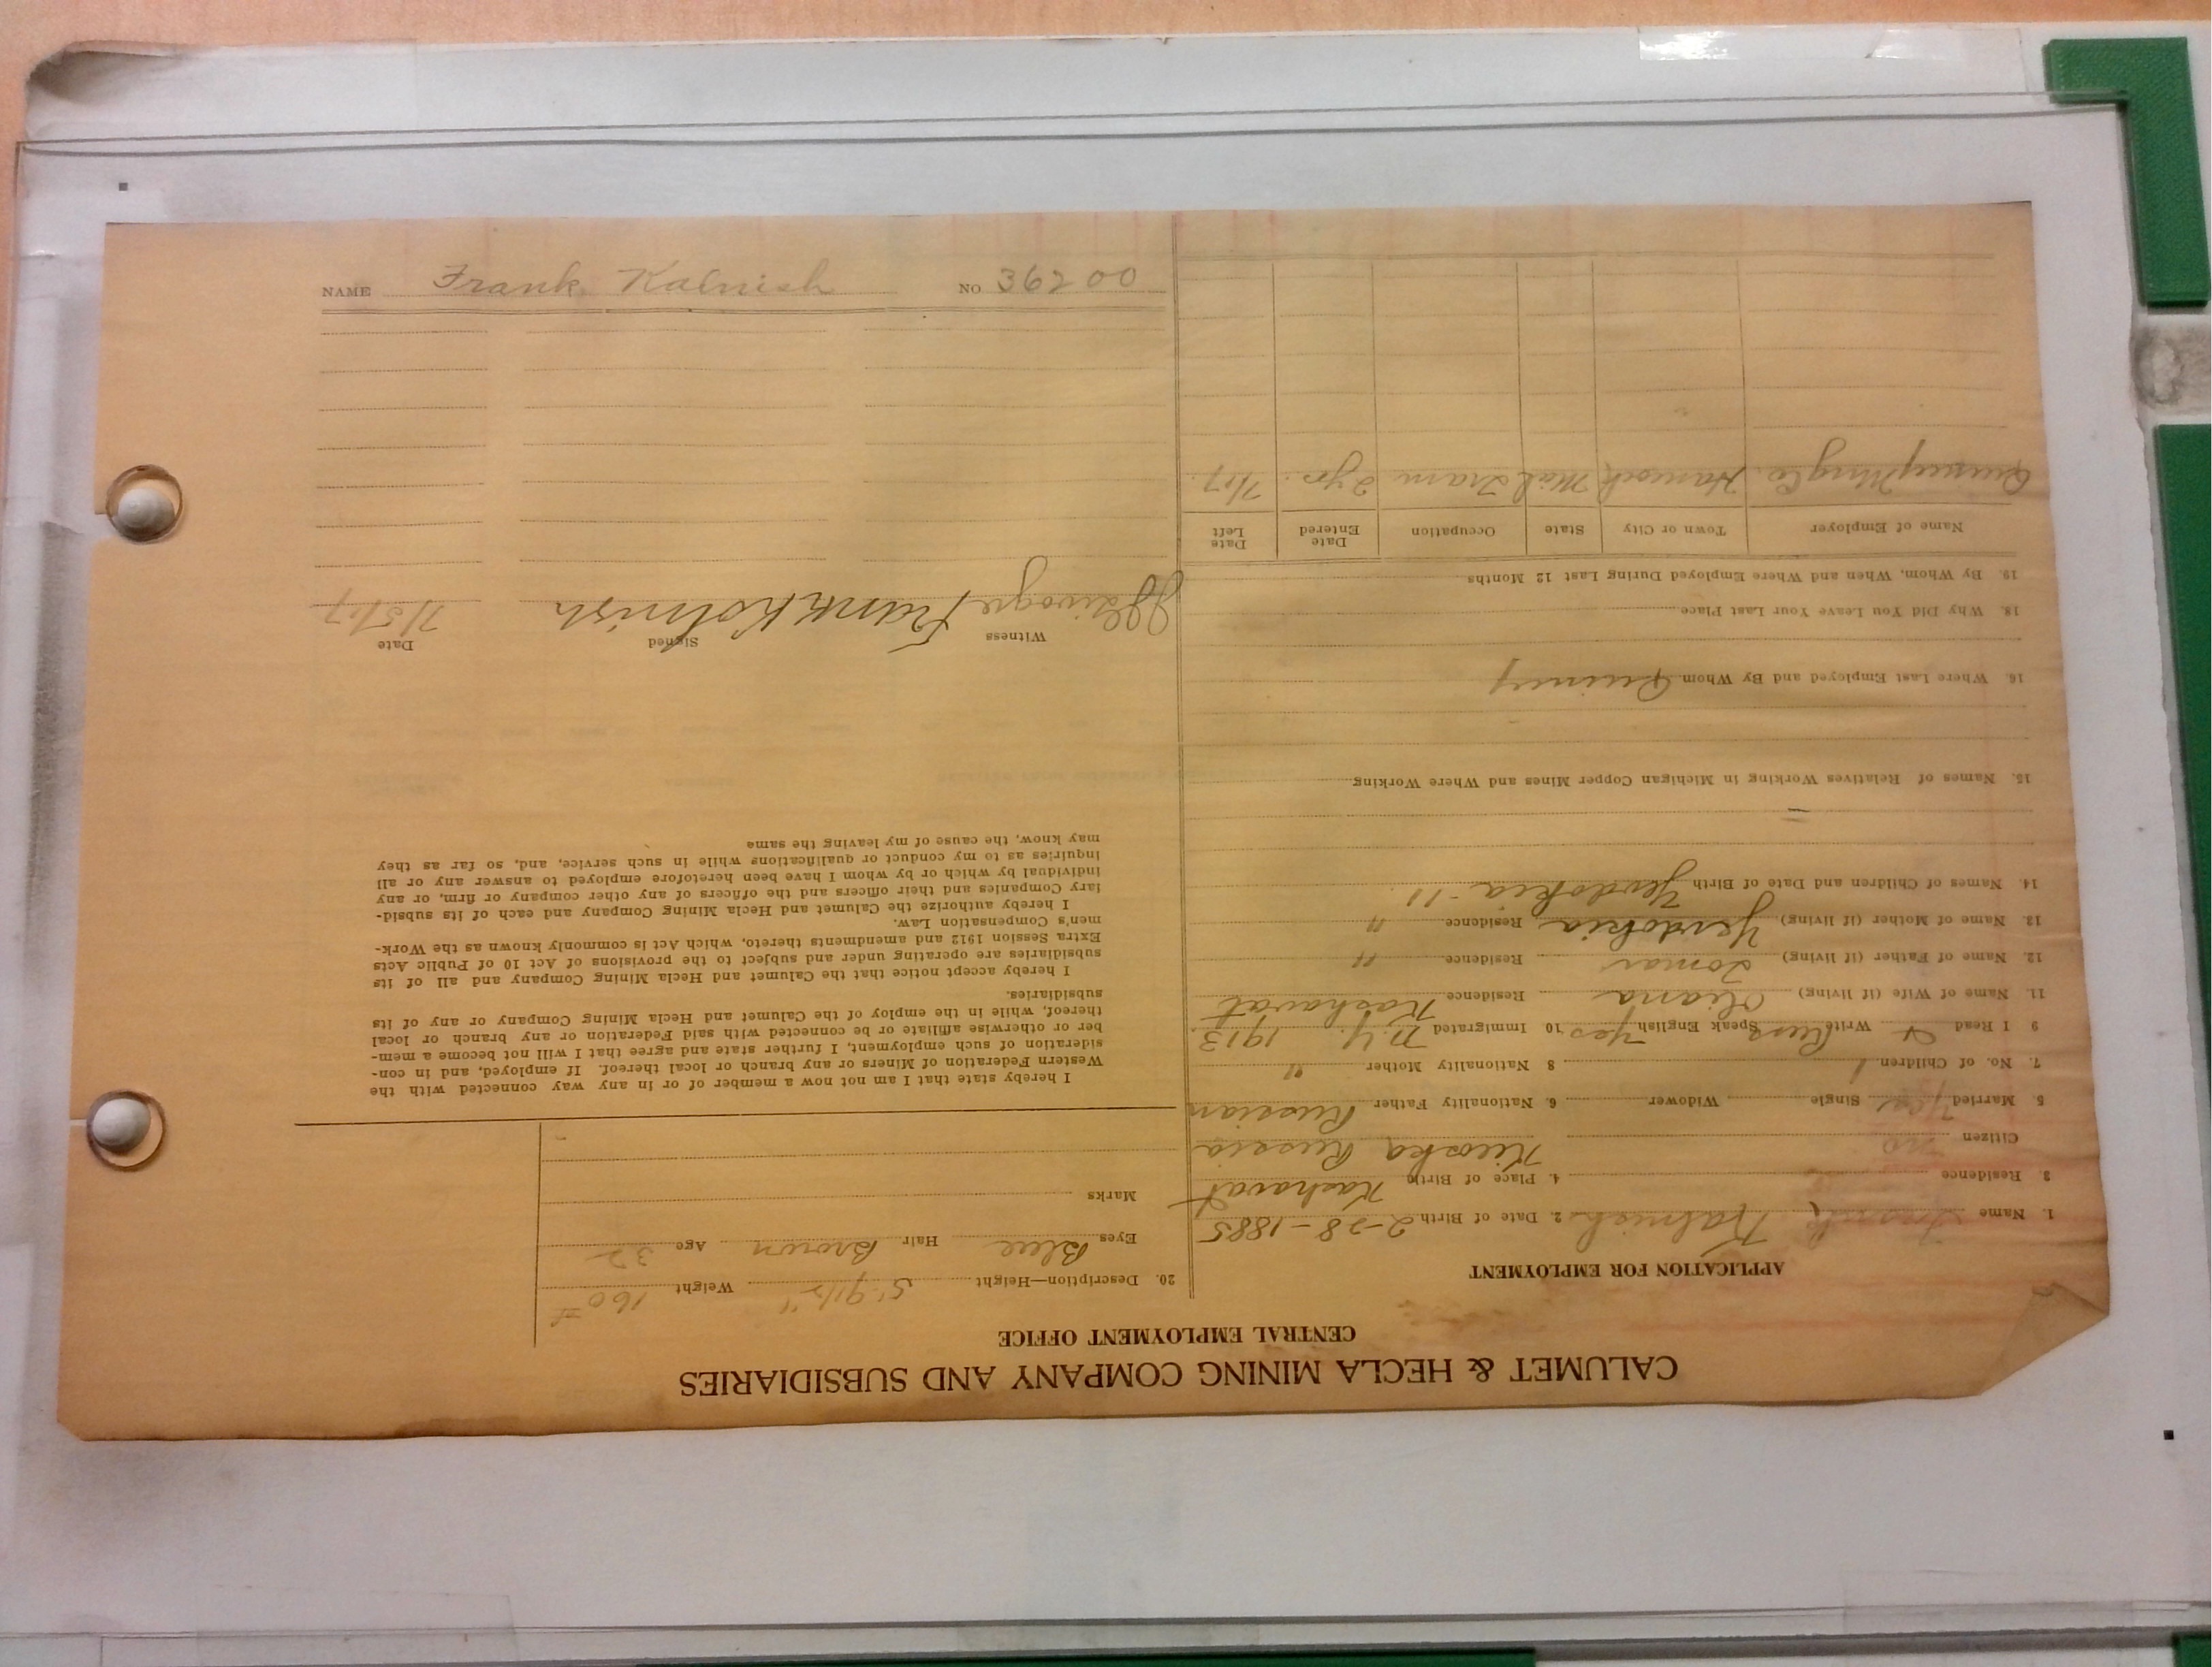 CALUMET & HECLA MINING COMPANY AND SUBSIDIARIES
CENTRAL EMPLOYMENT OFFICE
APPLICATION FOR EMPLOYMENT
1. Name Frank Kalnish 2. Date of Birth 2-28-1885
3. Residence 4. Place of Birth Kashavat
Citizen no Kieoska Russia
5. Married Yes Single Widower 6. Nationality Father Russian
7. No. of Children 1 8 Nationality Mother "
9 I Read & Write Russ Speak English Yes 10 Immigrated N.Y. 1913
11. Name of Wife (if living) Oliana Residence Kashavat
12. Name of Father (if living) Tomas Residence "
13. Name of Mother (if living) Yevdokia Residence "
14. Names of Children and Date of Birth Yevdokia - 11
15. Names of Relatives Working in Michigan Copper Mines and Where Working
16. Where Last Employed and By Whom Quincy
18. Why Did You Leave Your Last Place
19. By Whom, When and Where Employed During Last 12 Months
Name of Employer Town or City State Occupation Date Entered Date Left
Quincy Mng Co. Hancock Mich Tram 2 yrs. 7/17.
20. Description—Height 5' 9 1/2" Weight 160#
Eyes Blue Hair Brown Age 32
Marks
I hereby state that I am not now a member of or in any way connected with the
Western Federation of Miners or any branch or local thereof. If employed, and in con-
sideration of such employment, I further state and agree that I will not become a mem-
ber or otherwise affiliate or be connected with said Federation or any branch or local
thereof, while in the employ of the Calumet and Hecla Mining Company or any of its
subsidiaries.
I hereby accept notice that the Calumet and Hecla Mining Company and all of its
subsidiaries are operating under and subject to the provisions of Act 10 of Public Acts
Extra Session 1912 and amendments thereto, which Act is commonly known as the Work-
men's Compensation Law.
I hereby authorize the Calumet and Hecla Mining Company and each of its subsid-
iary Companies and their officers and the officers of any other company or firm, or any
individual by which or by whom I have been heretofore employed to answer any or all
inquiries as to my conduct or qualifications while in such service, and, so far as they
may know, the cause of my leaving the same
Witness Signed Date
Frank Kolnish 7/5/17
NAME Frank Kalnish NO 36200